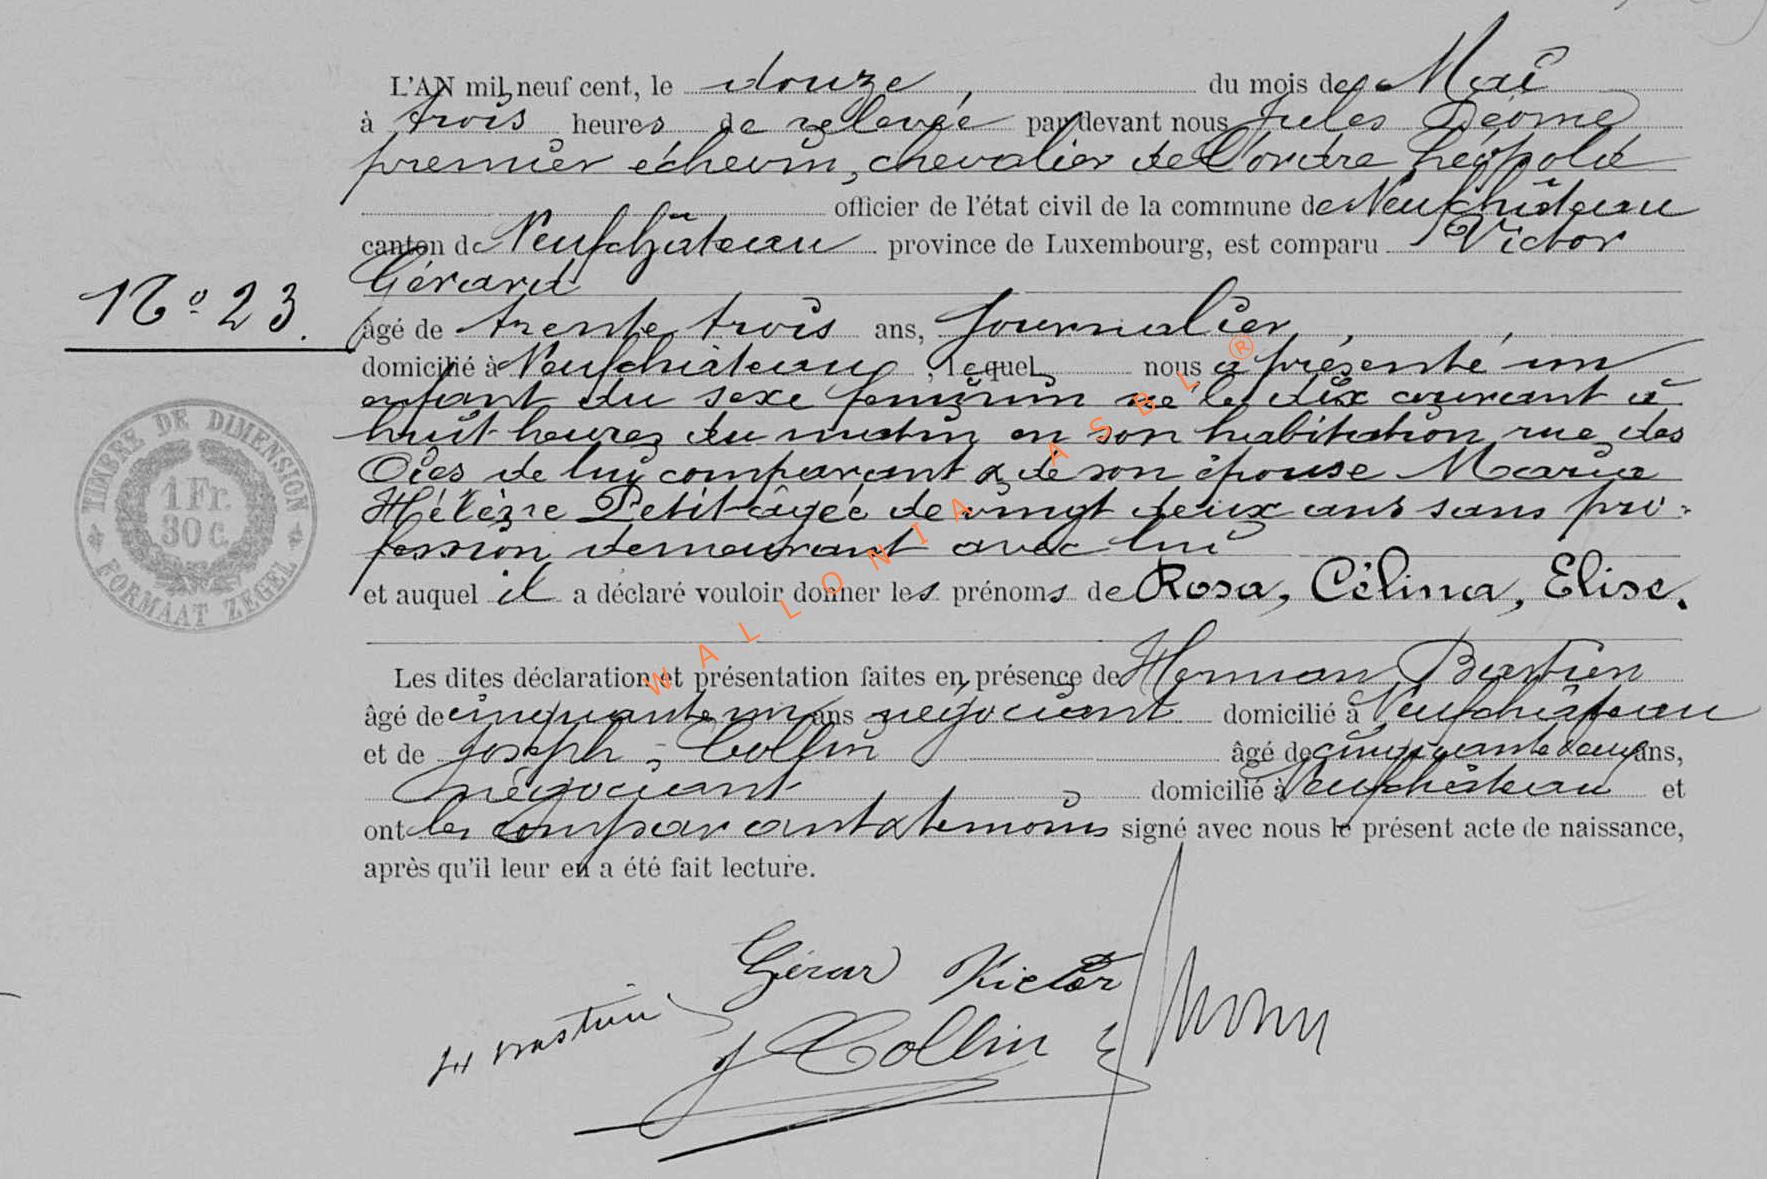 L'AN mil neuf cent, le douze, du mois de Mai
à trois heures de relevée par devant nous Jules Déome
premier échevin, chevalier de l'ordre Léopold
officier de l'état civil de la commune de Neufchâteau
canton de Neufchâteau province de Luxembourg, est comparu Victor
Gérard
N° 23.
âgé de trente trois ans, journalier,
domicilié à Neufchâteau, lequel nous a présenté un
enfant du sexe feminin né le dix courant à
huit heures du matin en son habitation rue des
Oies de lui comparant & de son épouse Maria
Hélène Petit âgée de vingt deux ans sans pro-
fession demeurant avec lui
et auquel il a déclaré vouloir donner les prénoms de Rosa, Célina, Elise.
TIMBRE DE DIMENSION
1 Fr.
30 c.
FORMAAT ZEGEL
Les dites déclaration et présentation faites en présence de Herman Bastien
âgé de cinquante un ans négociant domicilié à Neufchâteau
et de Joseph - Collin âgé de cinquante deux ans,
négociant domicilié à Neufchâteau et
ont les comparant & temoins signé avec nous le présent acte de naissance,
après qu'il leur en a été fait lecture.
Gérar Victor
H Bastien
J Collin
WALLONIA ASBL ®